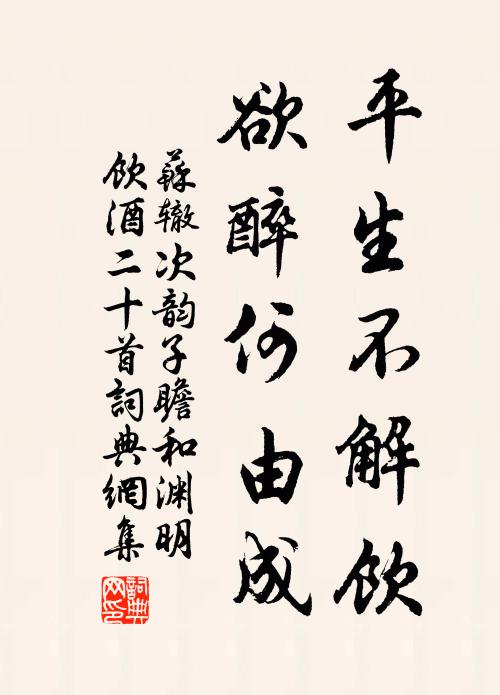 平生不解飲
欲醉何由成
蘇辙次韵子瞻和渊明
飲酒二十首詞典網集
詞典網印